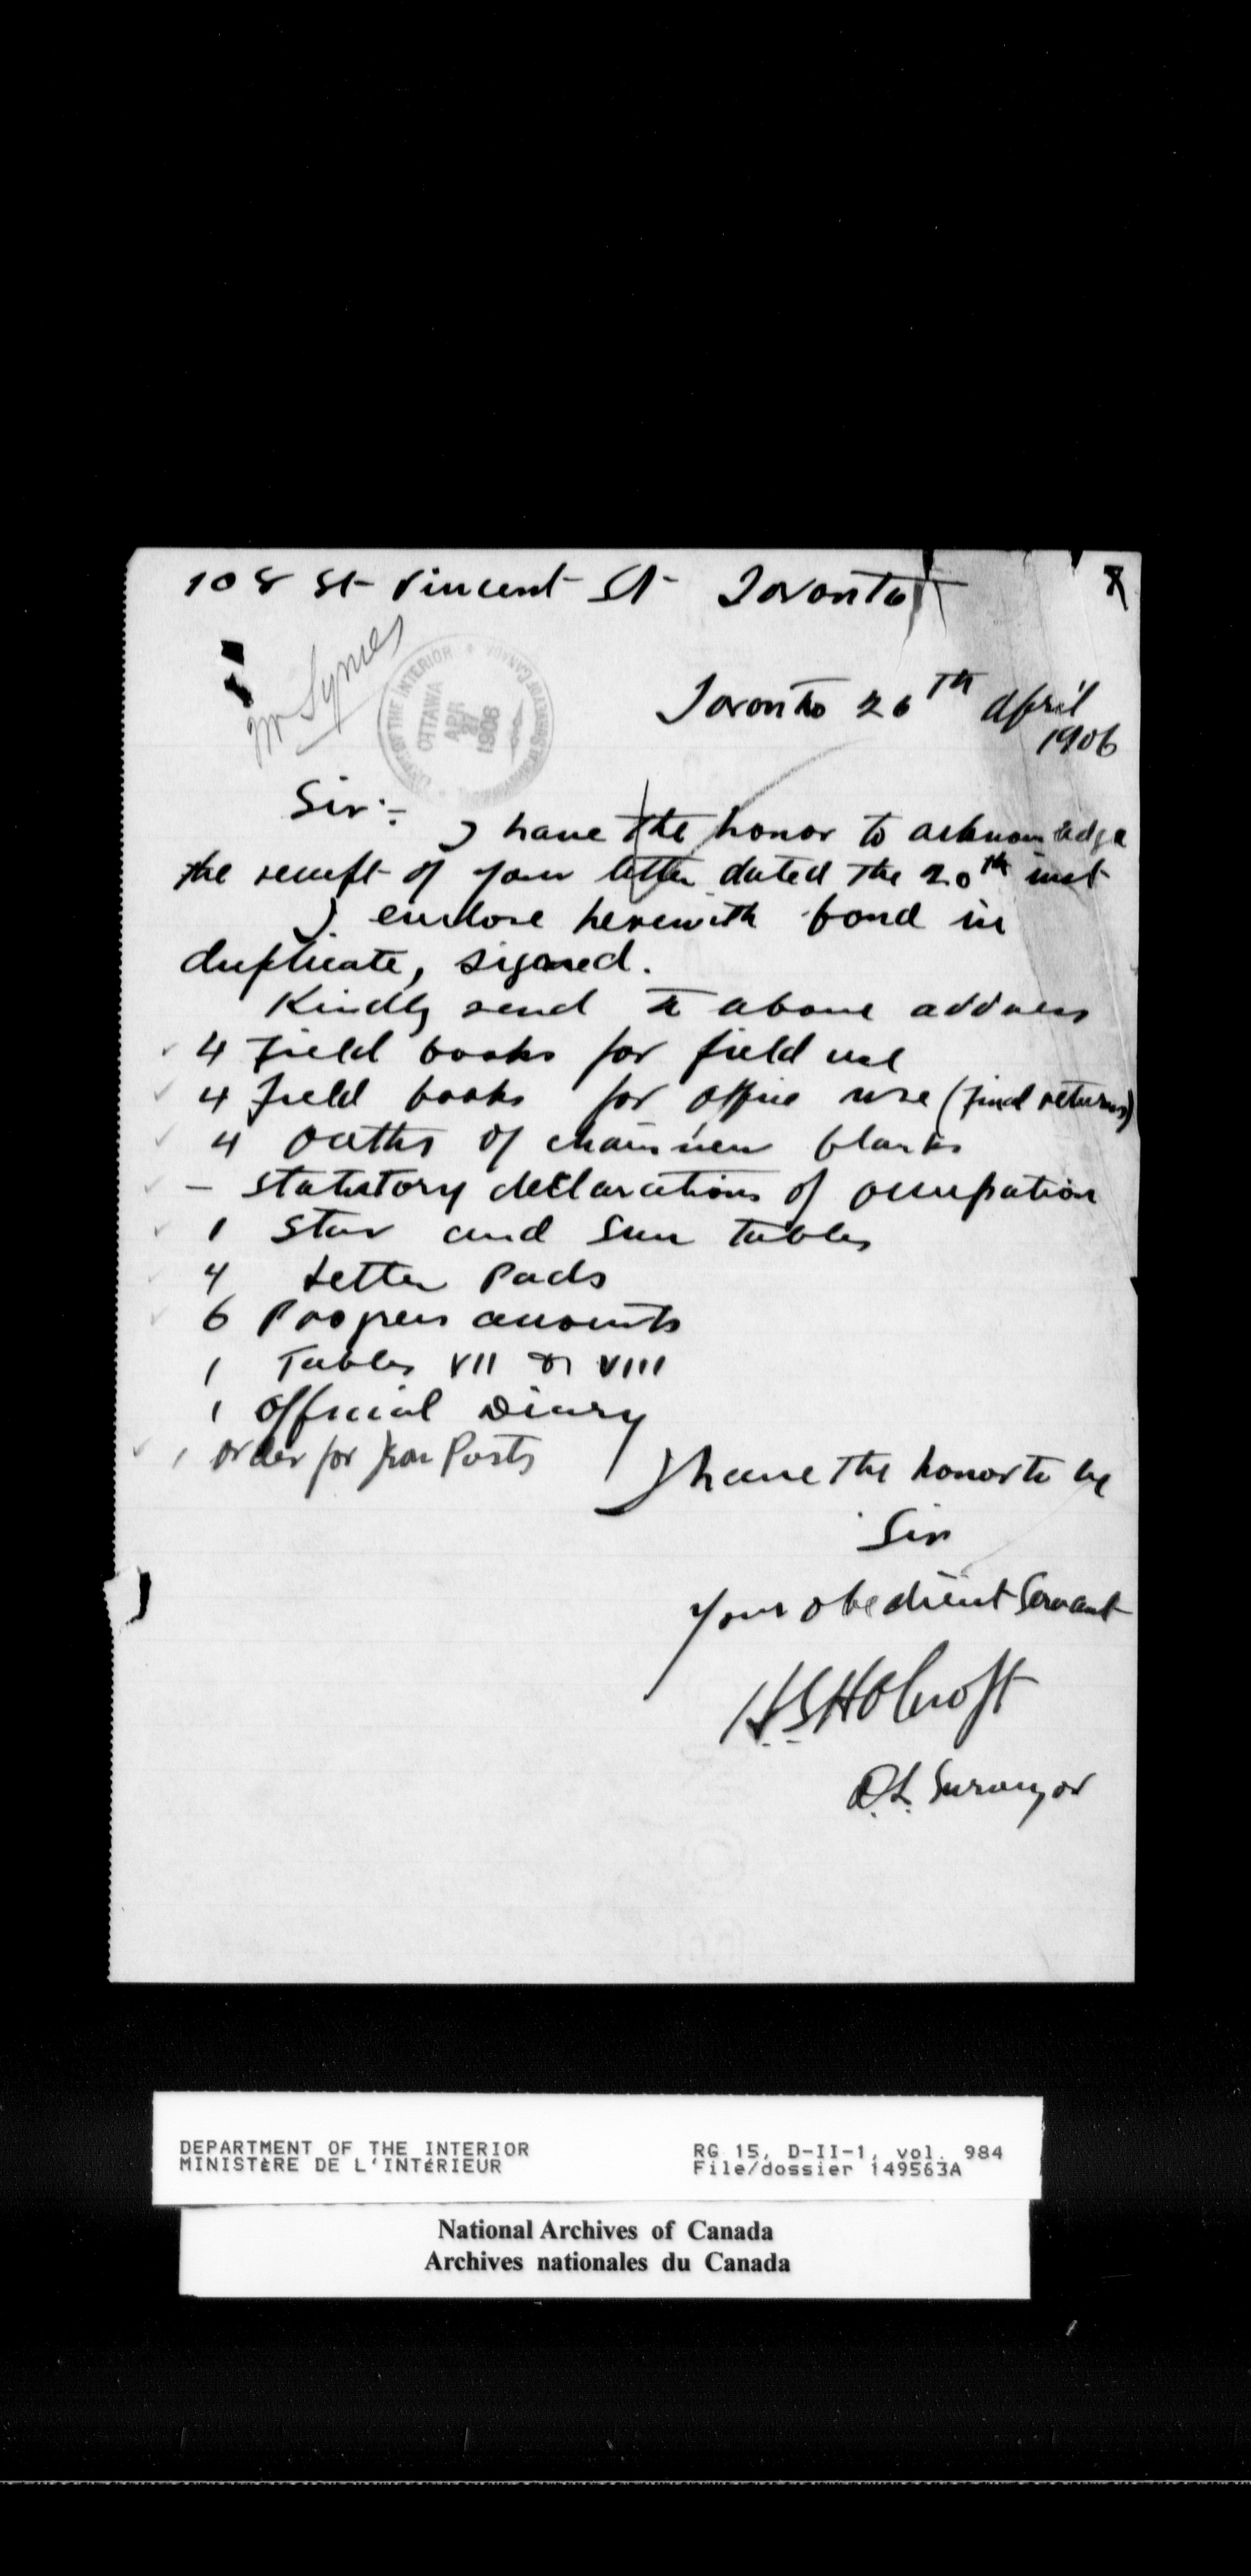 108 St Vincent St Toronto
Mr Symes
OTTAWA
APR
27
1906
Toronto 26th April
1906
Sir:-
I have the honor to acknowledge
the receipt of your letter dated the 20th inst
I enclose herewith bond in
duplicate, signed.
Kindly send to above address
4 Field books for field use
4 Field books for office use (final returns)
4 Oaths of chainmen blanks
- Statutory declarations of occupation
1 Star and Sun Tables
4 Letter Pads
6 Progress accounts
1 Tables VII & VIII
1 Official Diary
1 Order for Iron Posts
I have the honor to be
Sir
Your obedient Servant
H.S. Holcroft
D.L. Surveyor
DEPARTMENT OF THE INTERIOR
MINISTÈRE DE L'INTÉRIEUR
RG 15, D-II-1, vol. 984
File/dossier 149563A
National Archives of Canada
Archives nationales du Canada